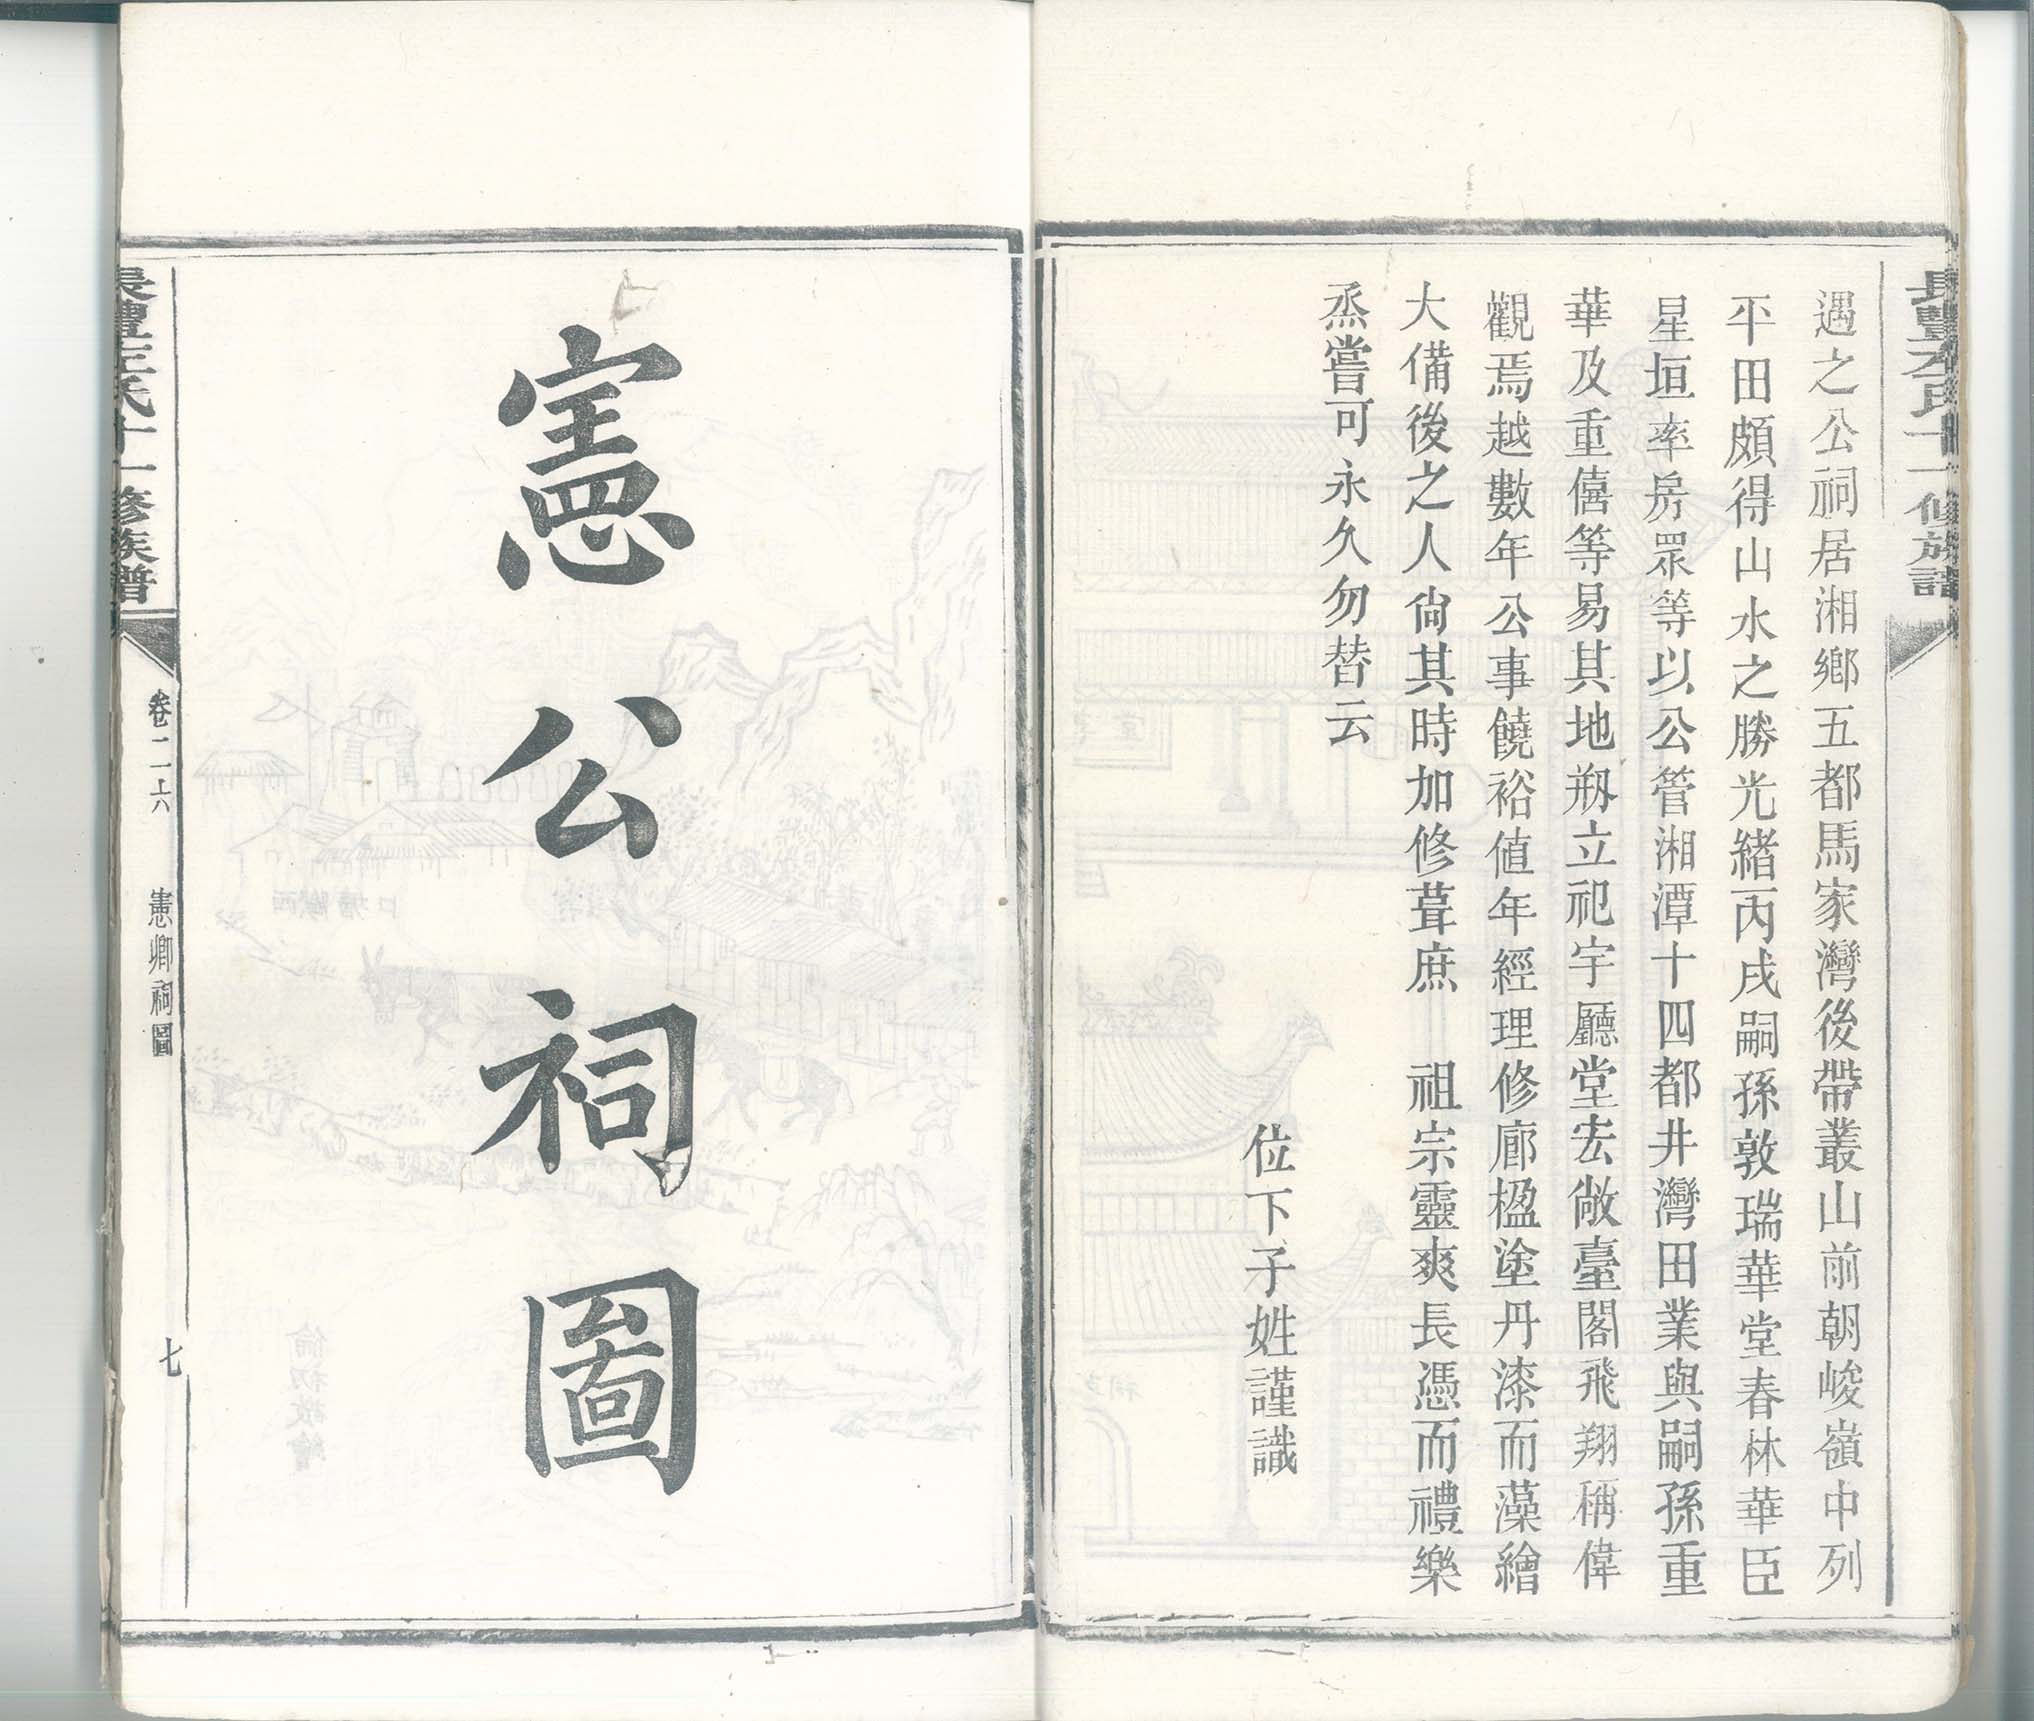 遇之公祠居湘鄉五都馬家灣後帶叢山前朝峻嶺中列
平田頗得山水之勝光緒丙戌嗣孫敦瑞華堂春林華臣
星垣率房眾等以公管湘潭十四都井灣田業與嗣孫重
華及重僖等易其地剏立祀宇廳堂宏敞臺閣飛翔稱偉
觀焉越數年公事饒裕值年經理修廊楹塗丹漆而藻繪
大備後之人尙其時加修葺庶　祖宗靈爽長憑而禮樂
烝嘗可永久勿替云
位下子姓謹識
憲公祠圖
氏十一修族譜
卷二六　憲卿祠圖
七